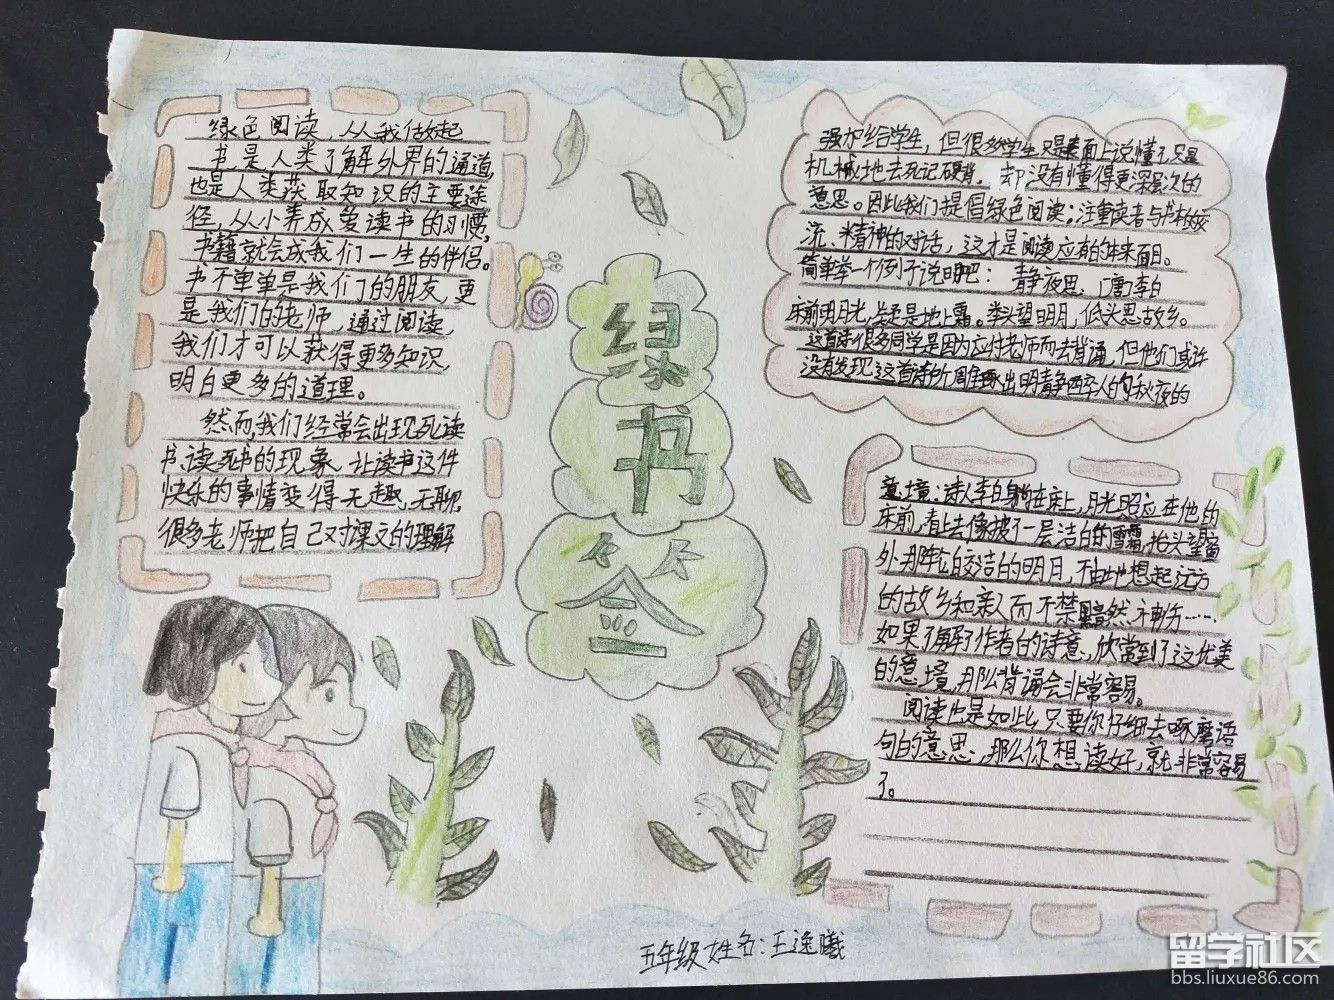 绿色阅读,从我做起
书是人类了解外界的通道,
也是人类获取知识的主要途
径,从小养成爱读书的习惯,
书籍就会成我们一生的伴侣。
书不单单是我们的朋友,更
是我们的老师,通过阅读,
我们才可以获得更多知识,
明白更多的道理。
然而,我们经常会出现死读
书,读死书的现象,让读书这件
快乐的事情变得无趣、无聊,
很多老师把自己对课文的理解
绿
书
签
强加给学生,但很多学生只是表面上说懂了,只是
机械地去死记硬背,却没有懂得更深层次的
意思。因此我们提倡绿色阅读;注重读者与书本的交
流、精神的对话,这才是阅读应有的本来面目。
简单举一个例子说明吧:静夜思、[唐]李白
床前明月光,疑是地上霜。举头望明月,低头思故乡。
这首诗很多同学是因为应付老师而去背诵,但他们或许
没有发现这首诗所雕琢出明静醉人的秋夜的
意境:诗人李白躺在床上,月光照应在他的
床前,看上去像披了一层洁白的雪霜,抬头望窗
外那轮皎洁的明月,不由地想起远方
的故乡和亲人而不禁黯然神伤……
如果了解了作者的诗意,欣赏到了这优美
的意境,那么背诵会非常容易。
阅读也是如此,只要你仔细去啄磨语
句的意思,那么你想读好,就非常容易
了。
五年级 姓名:王逸曦
留学社区
bbs.liuxue86.com